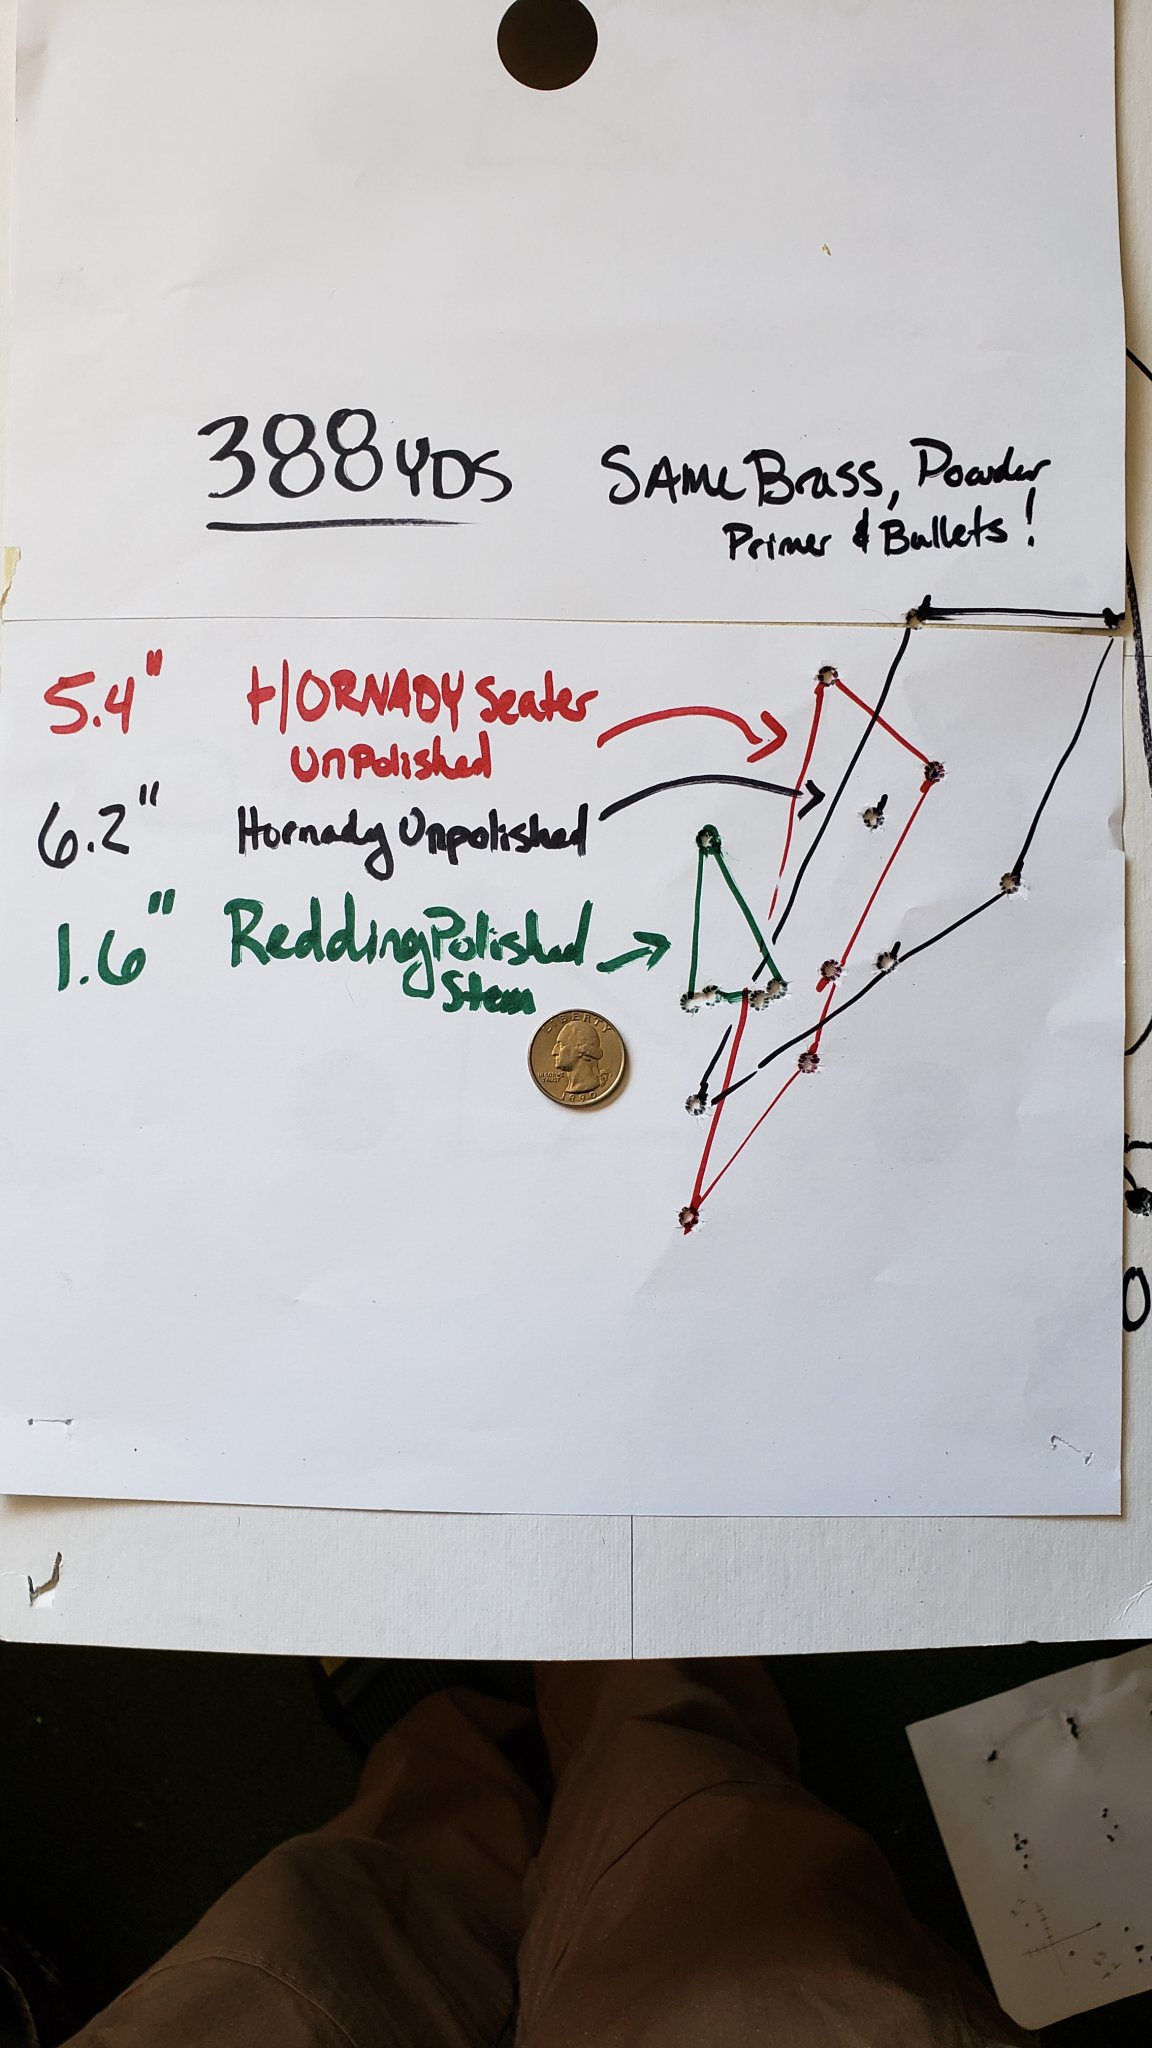 388 YDS
SAME Brass, Powder
Primer & Bullets!
5.4" HORNADY Seater
UnPolished
6.2" Hornady Unpolished
1.6" Redding Polished
Stem
LIBERTY
1990